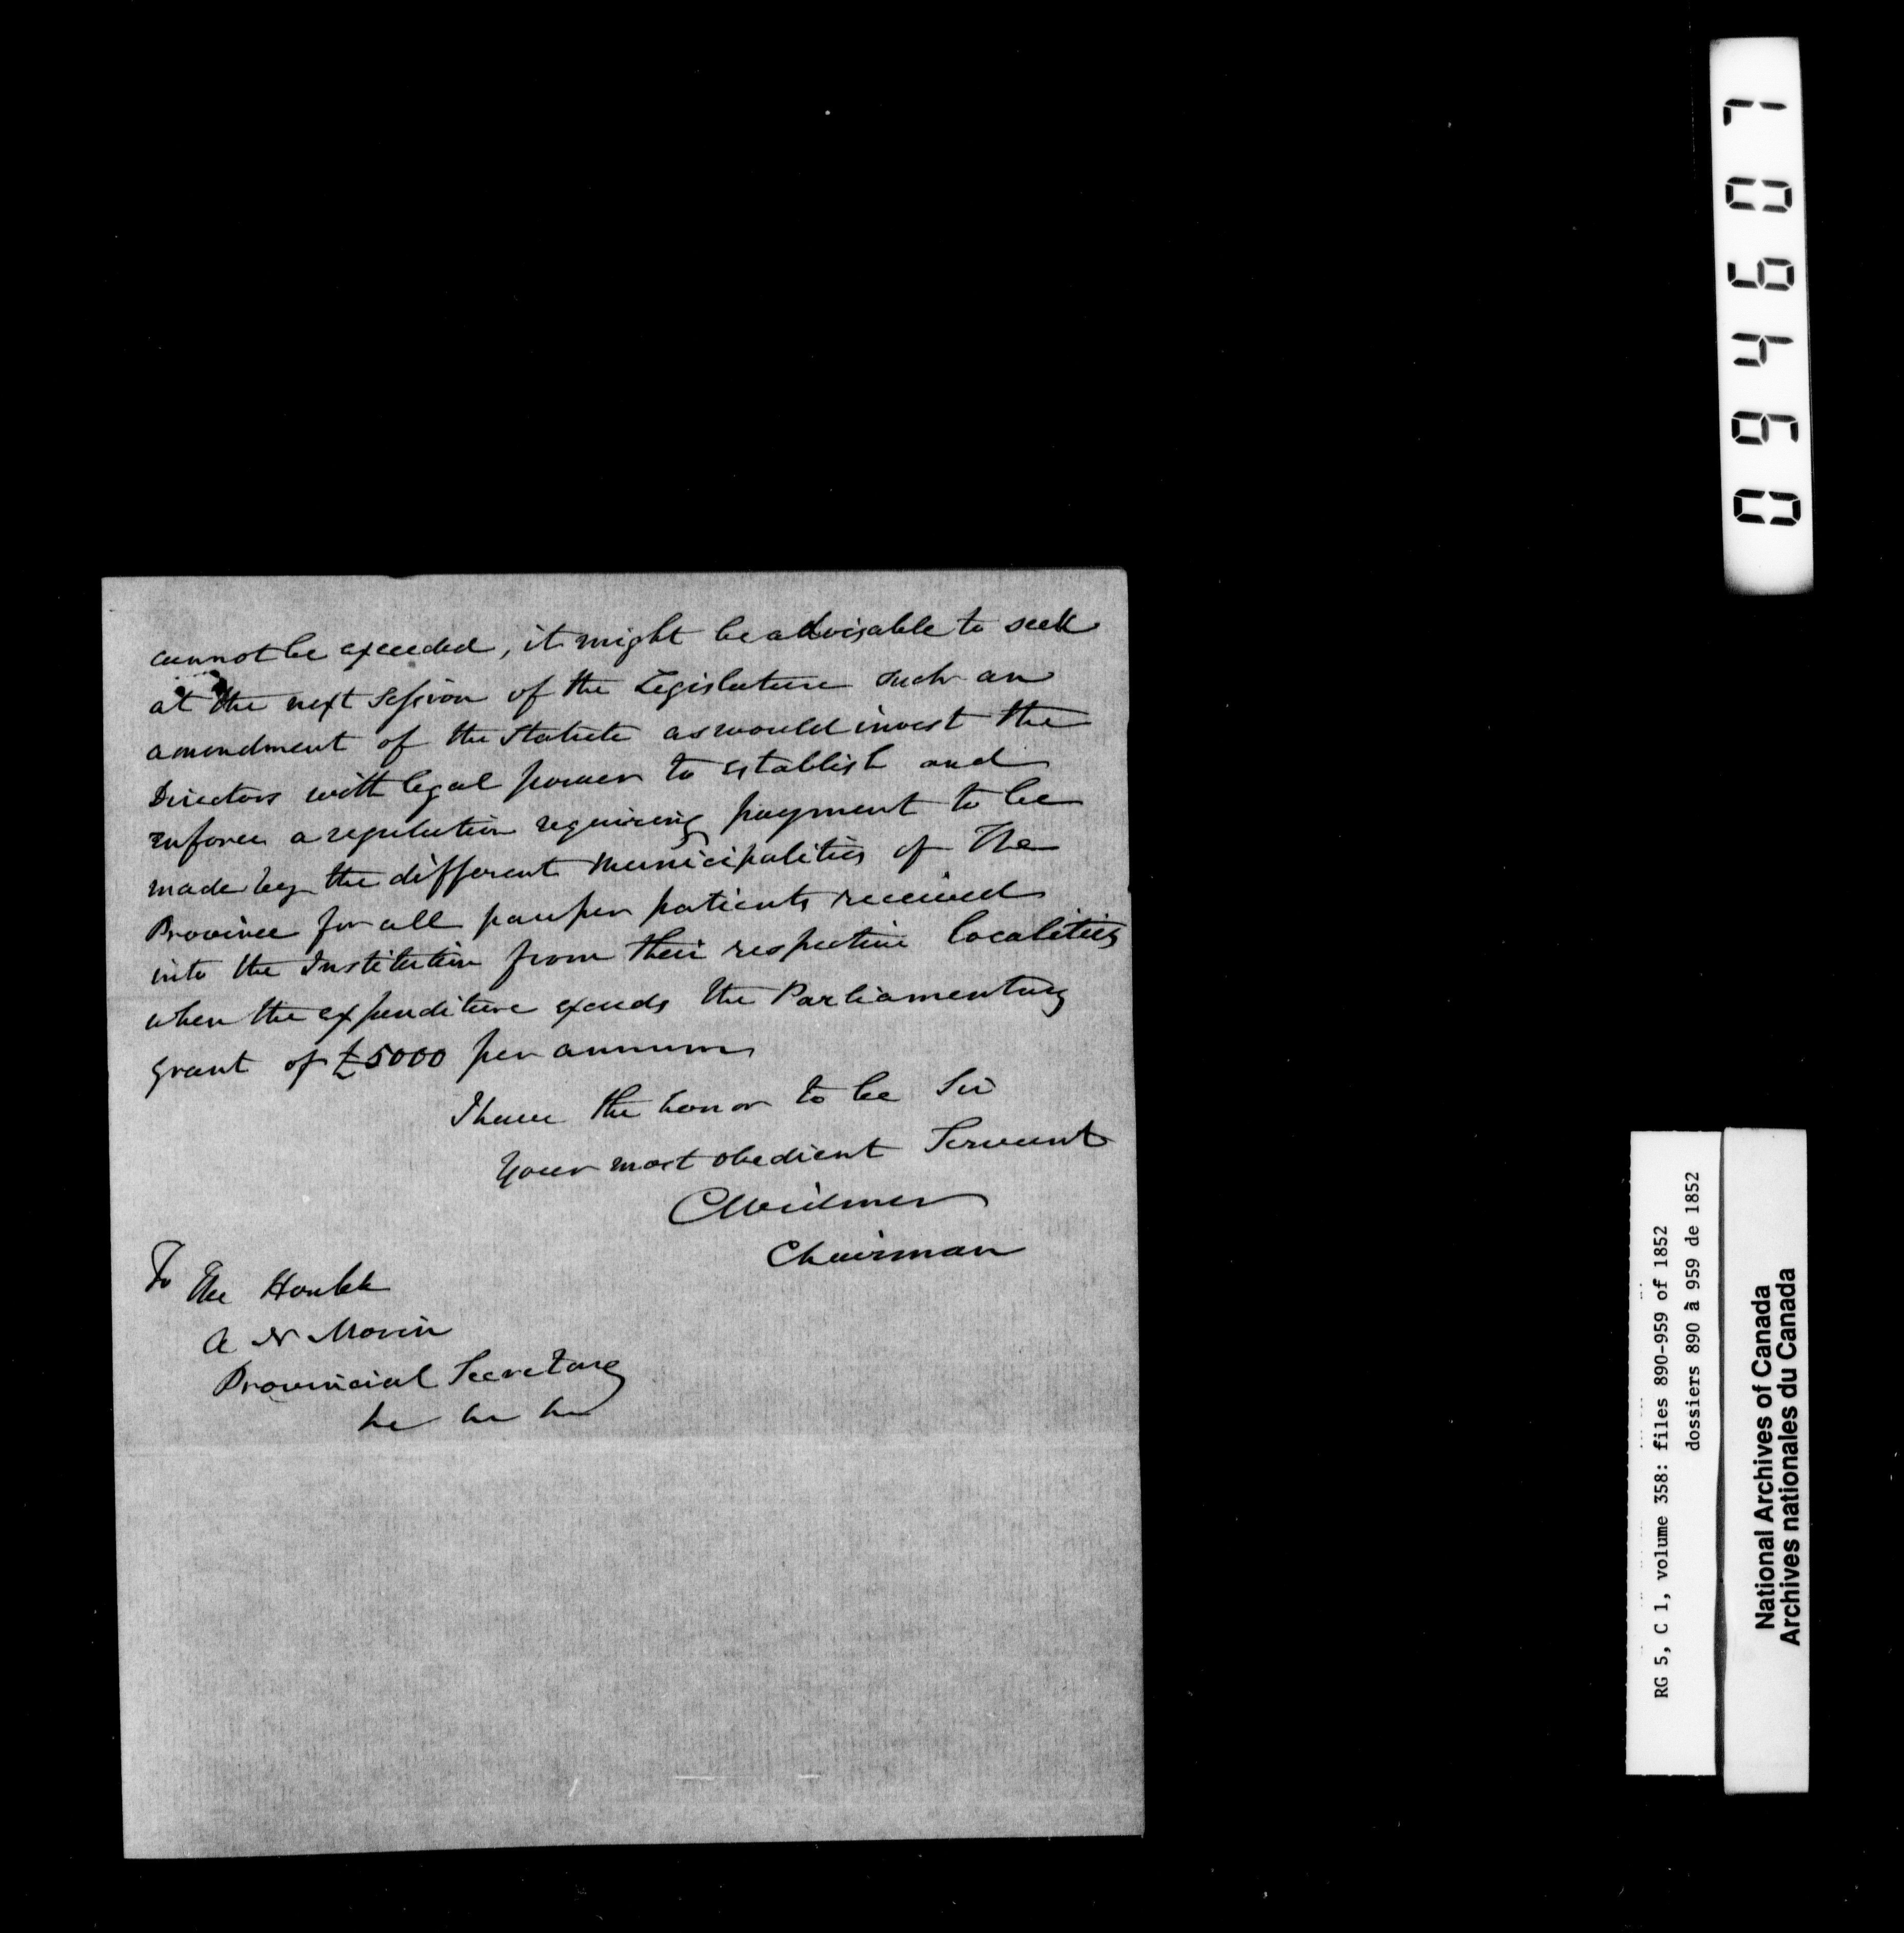 cannot be exceeded, it might be advisable to seek
at the next Session of the Legislature such an
amendment of the Statute as would invest the
Directors with legal power to establish and
enforce a regulation requiring payment to be
made by the different Municipalities of the
Province for all pauper patients received
into the Institution from their respective localities
when the expenditure exceeds the Parliamentary
grant of £5000 per annum
I have the honor to be Sir
Your most obedient Servant
C Widmer
Chairman
To The Honble
A N Morin
Provincial Secretary
&c &c &c
094607
RG 5, C 1, volume 358: files 890-959 of 1852
dossiers 890 à 959 de 1852
National Archives of Canada
Archives nationales du Canada